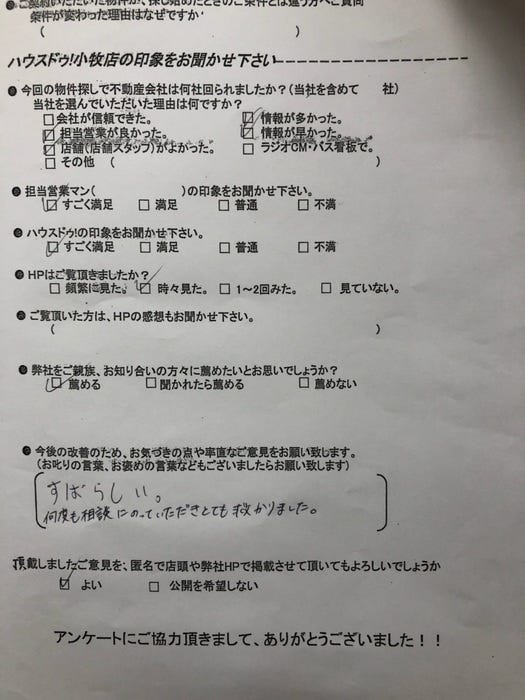 ●ご契約いただいた物件が、探し始めたときのご条件とは違う方へご質問
条件が変わった理由はなぜですか
( )
ハウスドゥ!小牧店の印象をお聞かせ下さい
●今回の物件探しで不動産会社は何社回られましたか?(当社を含めて 社)
当社を選んでいただいた理由は何ですか?
□会社が信頼できた。 ☑情報が多かった。
☑担当営業が良かった。 ☑情報が早かった。
☑店舗(店舗スタッフ)がよかった。 □ラジオCM・バス看板で。
□その他 ( )
●担当営業マン( )の印象をお聞かせ下さい。
☑すごく満足 □満足 □普通 □不満
●ハウスドゥ!の印象をお聞かせ下さい。
☑すごく満足 □満足 □普通 □不満
●HPはご覧頂きましたか?
□頻繁に見た。 ☑時々見た。 □1~2回みた。 □見ていない。
●ご覧頂いた方は、HPの感想もお聞かせ下さい。
( )
●弊社をご親族、お知り合いの方々に薦めたいとお思いでしょうか?
☑薦める □聞かれたら薦める □薦めない
●今後の改善のため、お気づきの点や率直なご意見をお願い致します。
(お叱りの言葉、お褒めの言葉などもございましたらお願い致します)
すばらしい。
何度も相談にのっていただきとても救かりました。
頂戴しましたご意見を、匿名で店頭や弊社HPで掲載させて頂いてもよろしいでしょうか
☑よい □公開を希望しない
アンケートにご協力頂きまして、ありがとうございました!!